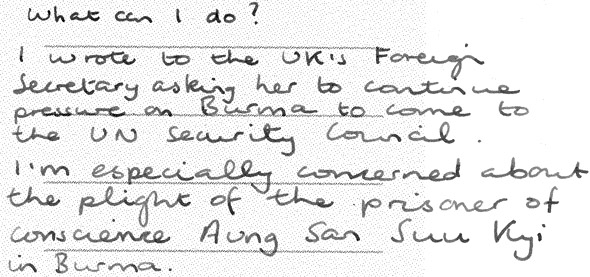 What can I do?
I wrote to the UK's Foreign
Secretary asking her to continue
pressure on Burma to come to
the UN Security Council.
I'm especially concerned about
the plight of the prisoner of
conscience Aung San Suu Kyi
in Burma.